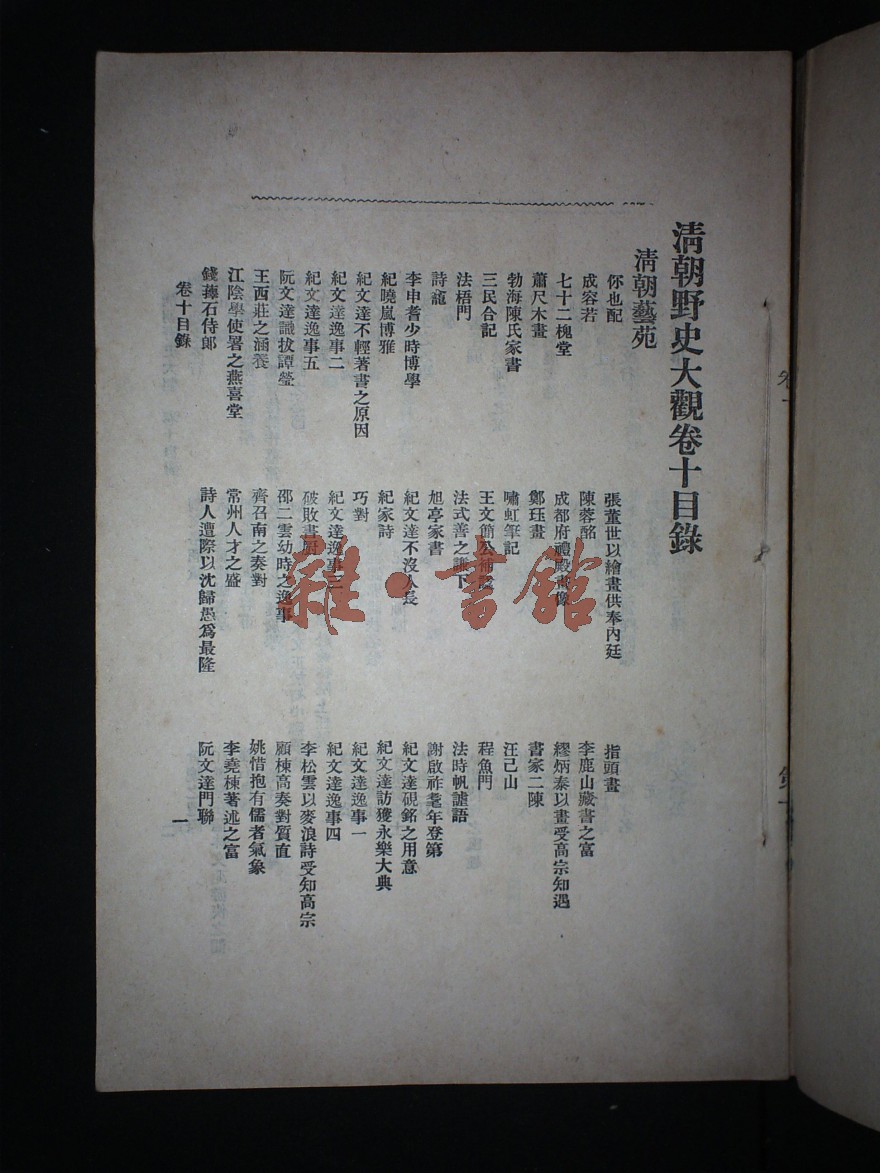 清朝野史大觀卷十目錄
清朝藝苑
你也配　張董世以繪畫供奉內廷　指頭畫
成容若　陳蓉酩　李鹿山藏書之富
七十二槐堂　成都府禮殿畫像　繆炳泰以畫受高宗知遇
蕭尺木畫　鄭珏畫　書家二陳
勃海陳氏家書　嘯虹筆記　汪己山
三民合記　王文簡公補諡　程魚門
法梧門　法式善之謙下　法時帆謔語
詩龕　旭亭家書　謝啟祚耄年登第
李申耆少時博學　紀文達不沒人長　紀文達硯銘之用意
紀曉嵐博雅　紀家詩　紀文達訪獲永樂大典
紀文達不輕著書之原因　巧對　紀文達逸事一
紀文達逸事二　紀文達逸事三　紀文達逸事四
紀文達逸事五　破敗書廚　李松雲以麥浪詩受知高宗
阮文達識拔譚瑩　邵二雲幼時之逸事　顧棟高奏對質直
王西莊之涵養　齊召南之奏對　姚惜抱有儒者氣象
江陰學使署之燕喜堂　常州人才之盛　李堯棟著述之富
錢蘀石侍郎　詩人遭際以沈歸愚爲最隆　阮文達門聯
卷十目錄　一
雜·書館